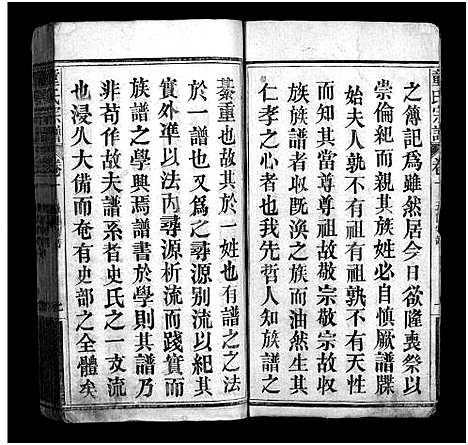 之傳記爲雖然居今日欲隆喪祭以
崇倫紀而親其族姓必自慎厥譜牒
始夫人孰不有祖孰不有宗有祖有宗
而知其當尊尊祖故敬宗敬宗故
族族者收既渙之族而油然生其
仁孝之心者也我先哲人知族譜之
綦重也故其於一姓也有譜之之法
於一譜也又爲之尋源别流以紀其
實外準以法內尋源析流而踐實而
族譜之學興焉譜書於學則其譜乃
非苟作故夫譜系者史氏之一支流
也浸久大備而奄有史部之全體矣
童氏宗譜
卷一